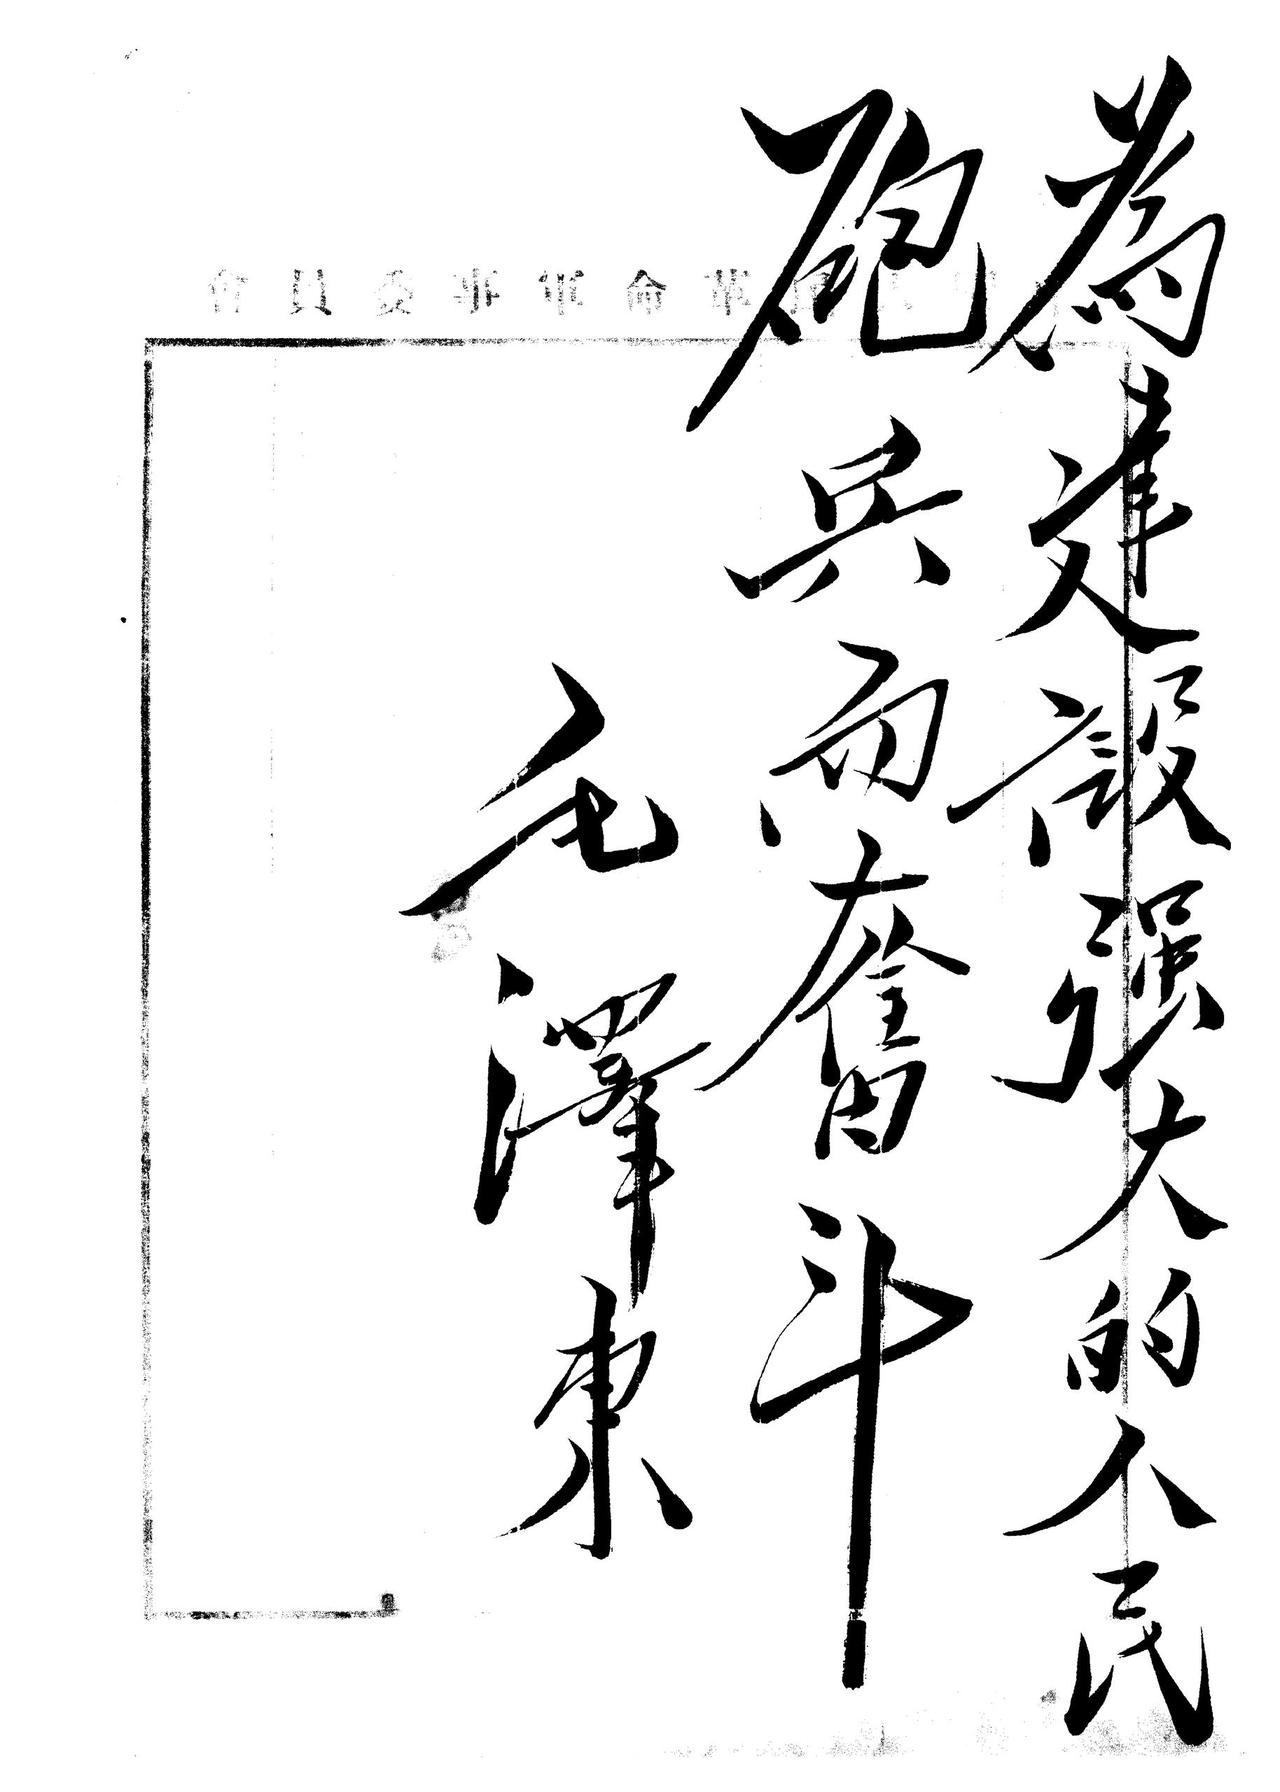 革命軍事委員會
為建設强大的人民
砲兵而奮斗
毛澤東